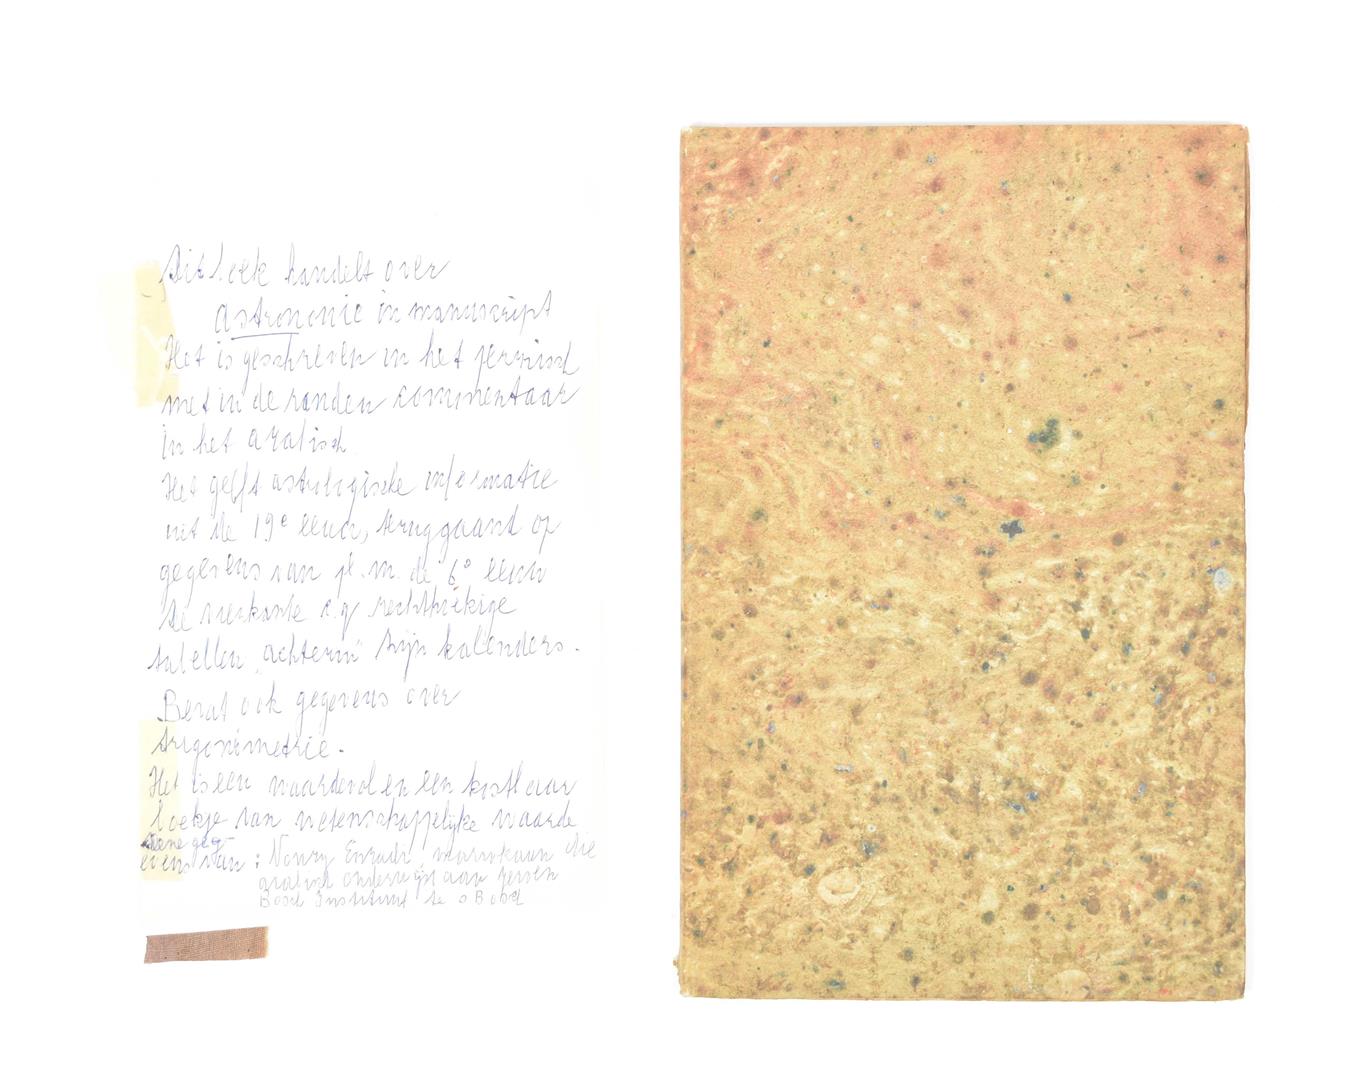 Dit boek handelt over
astronomie in manuscript
Het is geschreven in het persisch
met in de randen commentaar
in het arabisch
Het geeft astrologische informatie
uit de 19e eeuw, teruggaand op
gegevens van pl. m. de 6e eeuw
De vierkante c.q rechthoekige
tabellen "achterin" zijn kalenders.
Bevat ook gegevens over
trigonometrie.
Het is een waardevol en een kostbaar
boekje van wetenschappelijke waarde
Deze geg-
evens van : marokaan die
arabisch onderwijst aan
Instituut te